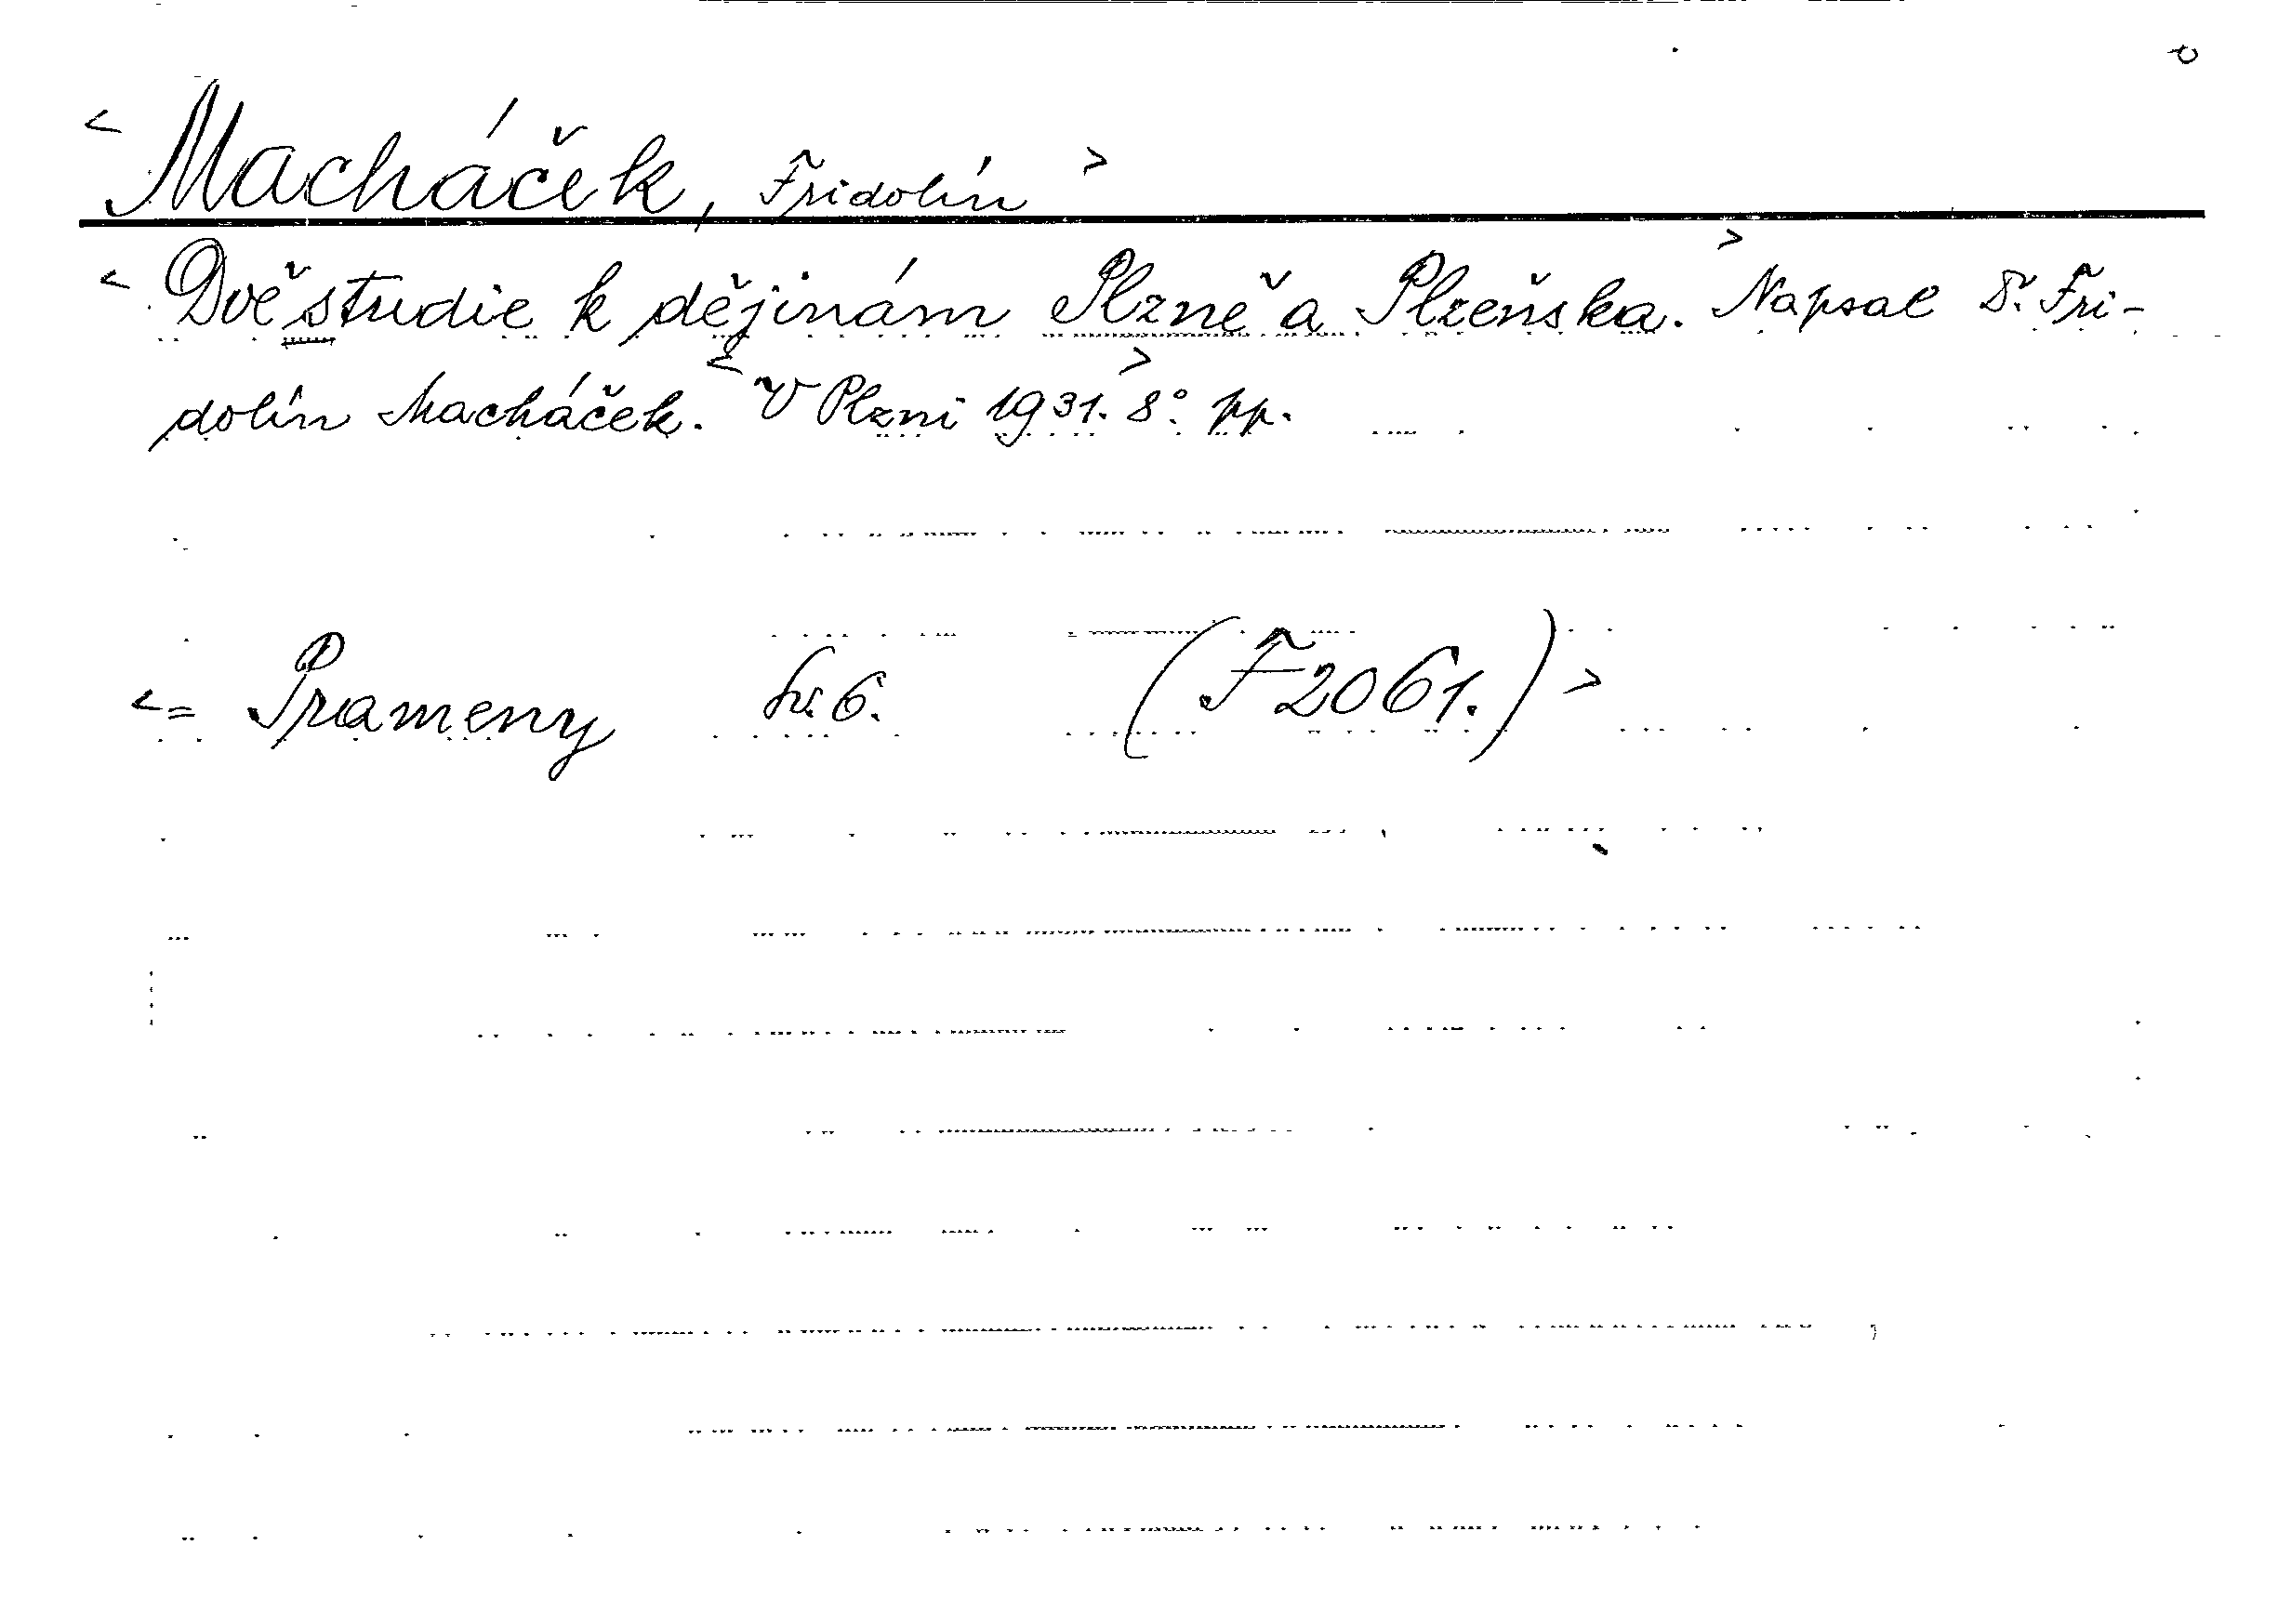 < Macháček, Fridolín >
< Dvě studie k dějinám Plzně a Plzeňska. > Napsal Dr. Fri-
dolín Macháček. < V Plzni 1931. > 8°. pp.
< = Prameny sv. 6. (F 2061.) >